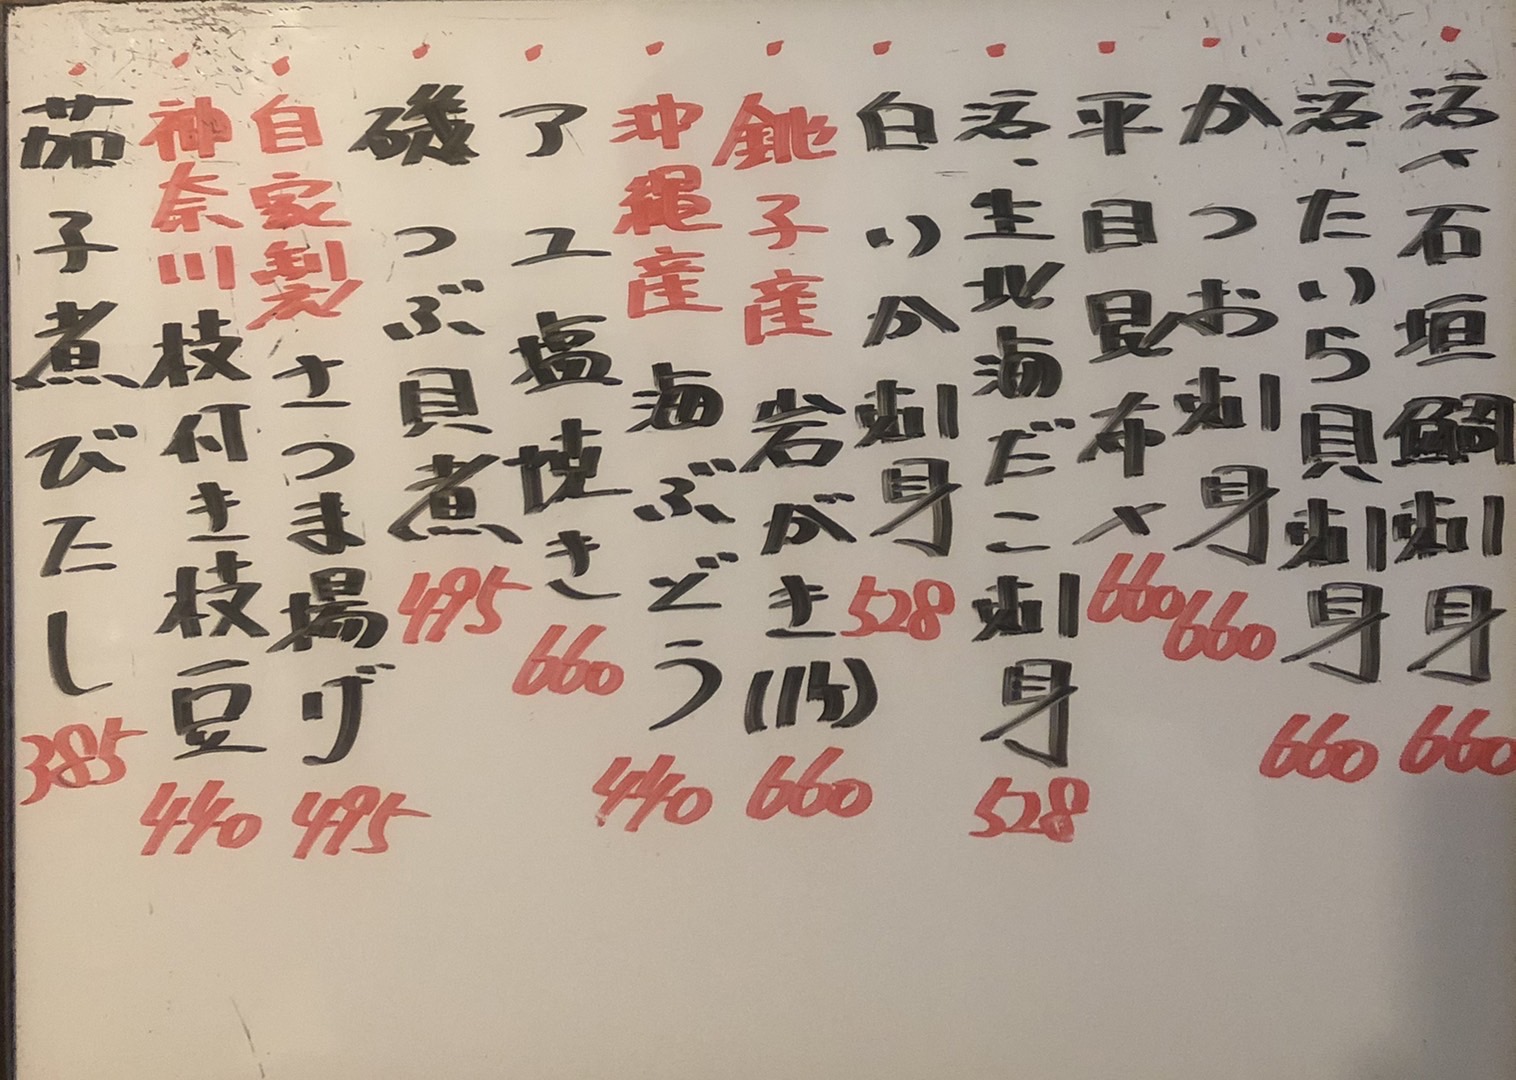 活〆石垣鯛刺身 660
活〆たいら貝刺身 660
かつお刺身 660
平目昆布〆 660
活〆生北海だこ刺身 528
白いか刺身 528
銚子産 岩がき(1ケ) 660
沖縄産 海ぶどう 440
アユ塩焼き 660
磯つぶ貝煮 495
自家製さつま揚げ 495
神奈川枝付き枝豆 440
茄子煮びたし 385